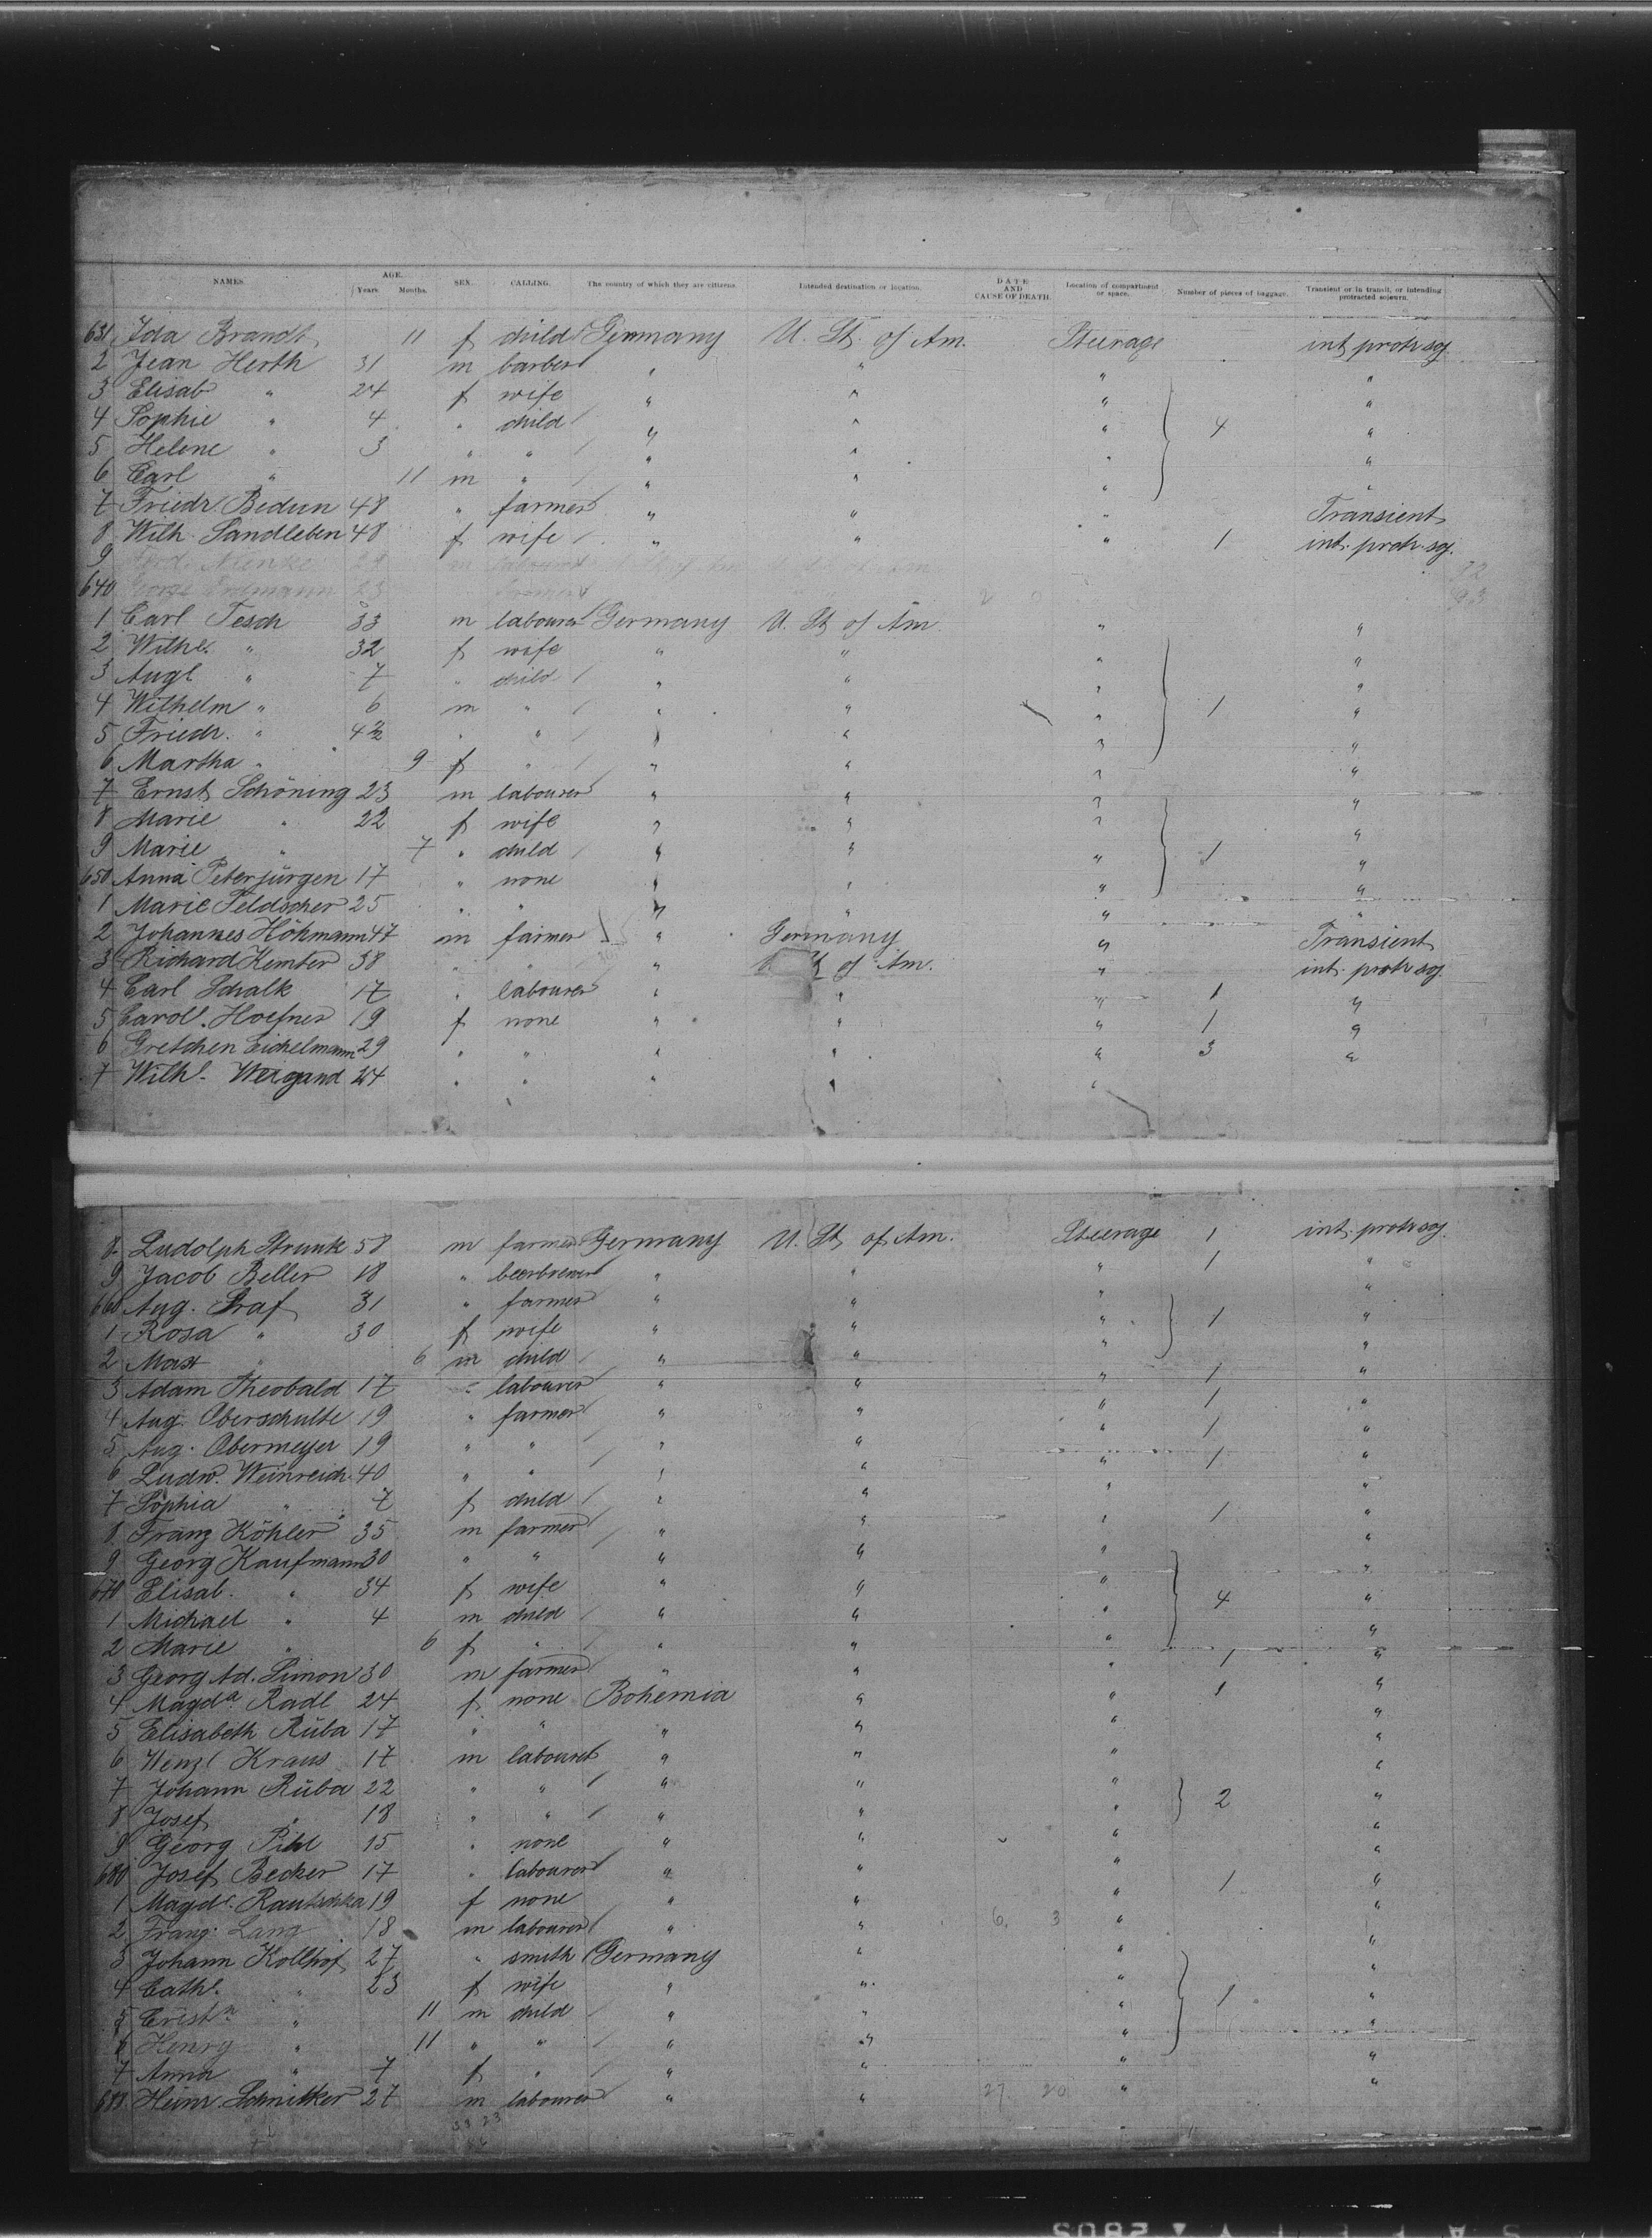 NAMES. AGE. Years. Months. SEX. CALLING. The country of which they are citizens. Intended destination or location. DATE AND CAUSE OF DEATH. Location of compartment or space. Number of pieces of baggage. Transient or in transit, or intending protracted sojourn.
631 Ida Brandt 11 f child Germany U. St. of Am. Steerage int. protr. soj.
2 Jean Herth 31 m barber " " " "
3 Elisab " 24 f wife " " " "
4 Sophie " 4 " child " " " 4 "
5 Helene " 3 " " " " " "
6 Carl " 11 m " " " " "
7 Friedr. Bedun 48 " farmer " " " Transient
8 Wilh. Sandleben 48 f wife " " " 1 int. protr. soj.
9
640 George Erdmann 23 farmer
1 Carl Tesch 33 m labourer Germany U. St. of Am " "
2 Wilhe. " 32 f wife " " " "
3 Augl " 7 " child " " " "
4 Wilhelm " 6 m " " " " 1 "
5 Friedr. " 4 " " " " " "
6 Martha " 9 f " " " " "
7 Ernst Schöning 23 m labourer " " " "
8 Marie " 22 f wife " " " "
9 Marie " 7 " child " " " 1 "
650 Anna Peterjürgen 17 " none " " " "
1 Marie Feldscher 25 " " " " " "
2 Johannes Höhmann 47 m farmer " Germany " Transient
3 Richard Kemter 38 " " " U. St. of Am. " int. protr. soj.
4 Carl Schalk 17 " labourer " " " 1 "
5 Carol. Hoefner 19 f none " " " 1 "
6 Gretchen Eichelmann 29 " " " " " 3 "
7 Wilhl. Weigand 24 " " " " "
8 Ludolph Strunk 58 m farmer Germany U. St. of Am. Steerage 1 int. protr. soj.
9 Jacob Beller 18 " beerbrewer " " " 1 "
660 Aug. Graf 31 " farmer " " " "
1 Rosa " 30 f wife " " " 1 "
2 Max " 6 m child " " " "
3 Adam Theobald 17 " labourer " " " 1 "
4 Aug. Oberschulte 19 " farmer " " " 1 "
5 Aug. Obermeyer 19 " " " " " 1 "
6 Ludw. Weinreich 40 " " " " " 1 "
7 Sophia " 7 f child " " " "
8 Franz Köhler 35 m farmer " " " 1 "
9 Georg Kaufmann 30 " " " " " "
670 Elisab. " 34 f wife " " " "
1 Michael " 4 m child " " " 4 "
2 Marie " 6 f " " " " "
3 Georg Ad. Simon 30 m farmer " " " 1 "
4 Magda Radl 24 f none Bohemia " " 1 "
5 Elisabeth Rüba 17 " " " " " "
6 Wenzl Kraus 17 m labourer " " " "
7 Johann Rüba 22 " " " " " "
8 Josef " 18 " " " " " 2 "
9 Georg Pihl 15 " none " " " "
680 Josef Becker 17 " labourer " " " "
1 Magdc. Rautschka 19 f none " " " 1 "
2 Franz Lang 18 m labourer " " 6. 3 " "
3 Johann Kollhof 27 " smith Germany " " "
4 Cath. " 23 f wife " " " "
5 Cristn " 11 m child " " " 1 "
6 Henry " 11 " " " " " "
7 Anna " 7 f " " " " "
688 Heinr. Schnitker 27 m labourer " " 27. 20 " "
33 23